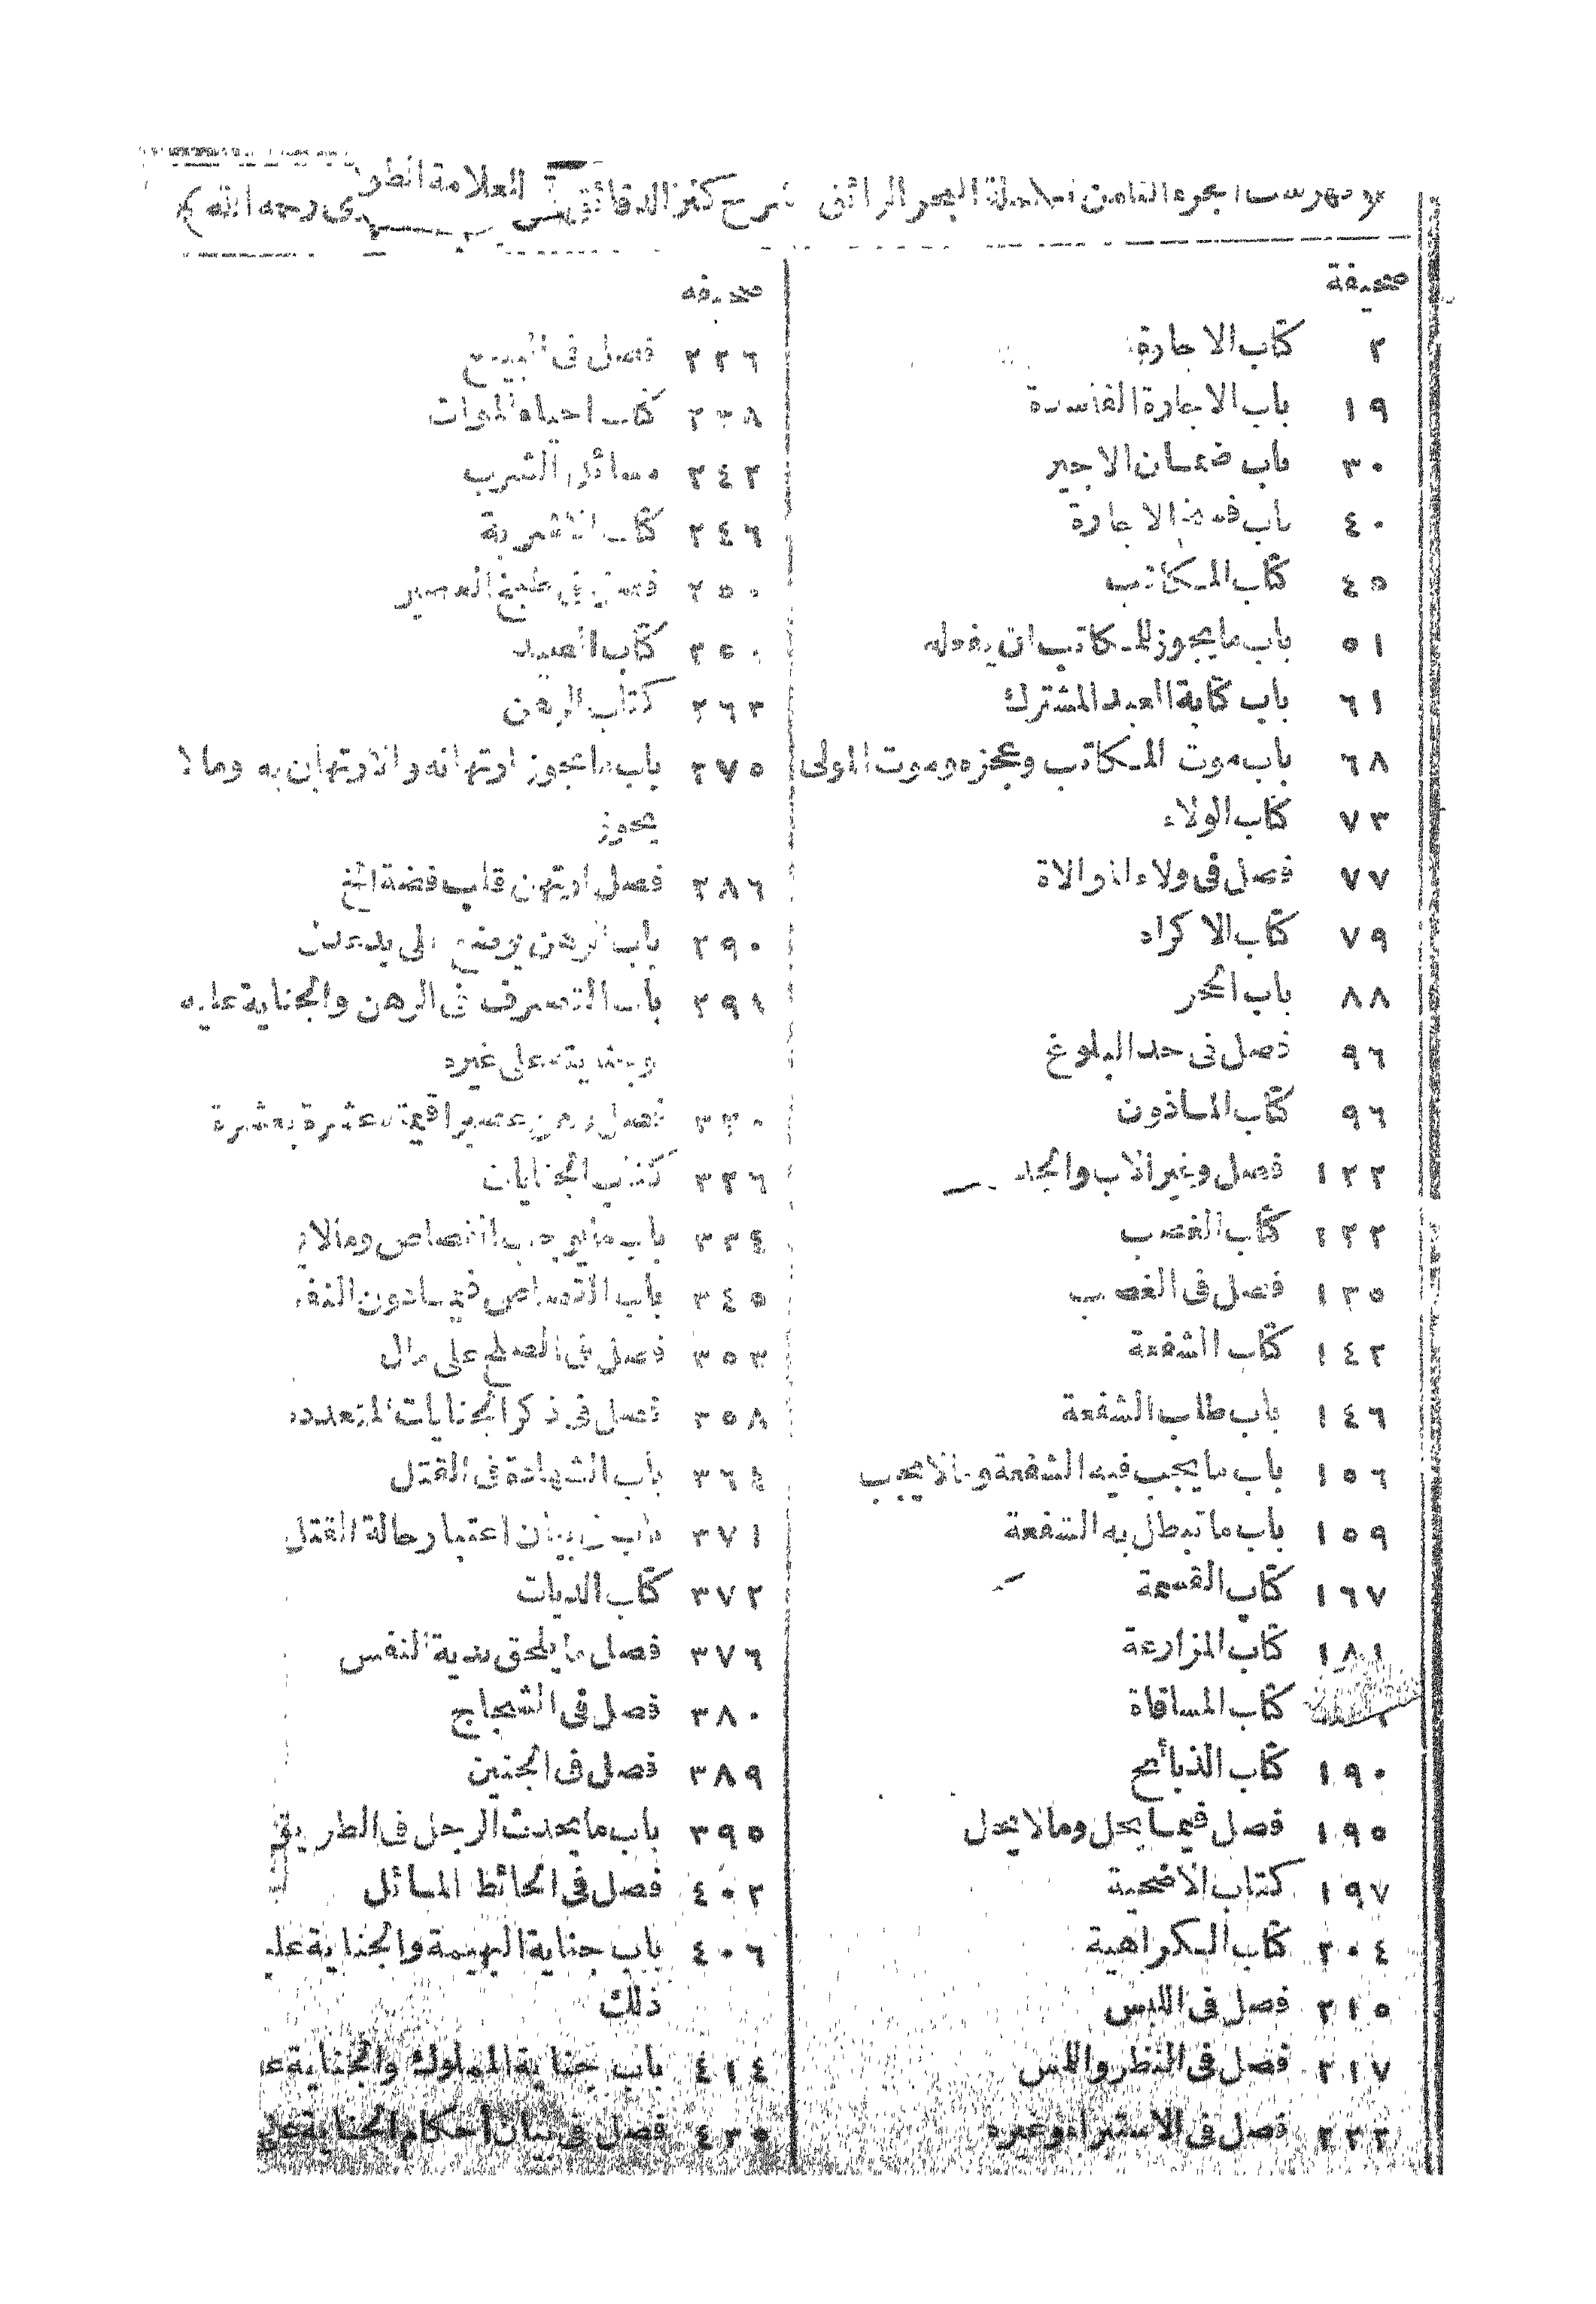 فهرست الجزء الثامن تكملة البحر الرائق شرح كنز الدقائق العلامة الطورى رحمه الله
صحيفة
٢ كتاب الاجارة
١٩ باب الاجارة الفاسدة
٣٠ باب ضمان الاجير
٤٠ باب فسخ الاجارة
٤٥ كتاب المكاتب
٥١ باب ما يجوز للمكاتب ان يفعله
٦١ باب كتابة العبد المشترك
٦٨ باب موت المكاتب وعجزه وموت المولى
٧٣ كتاب الولاء
٧٧ فصل فى ولاء الموالاة
٧٩ كتاب الاكراه
٨٨ باب الحجر
٩٦ فصل فى حد البلوغ
٩٦ كتاب المأذون
١٢٢ فصل وغير الاب والجد
١٢٢ كتاب الغصب
١٣٥ فصل فى الغصب
١٤٢ كتاب الشفعة
١٤٦ باب طلب الشفعة
١٥٦ باب ما يجب فيه الشفعة وما لا يجب
١٥٩ باب ما تبطل به الشفعة
١٦٧ كتاب القسمة
١٨١ كتاب المزارعة
كتاب المساقاة
١٩٠ كتاب الذبائح
١٩٥ فصل فيما يحل وما لا يحل
١٩٧ كتاب الاضحية
٢٠٤ كتاب الكراهية
٢١٥ فصل فى اللبس
٢١٧ فصل فى النظر واللمس
٢٢٢ فصل فى الاستبراء وغيره
صحيفة
٢٢٦ فصل فى البيع
٢٣٨ كتاب احياء الموات
٢٤٢ مسائل الشرب
٢٤٦ كتاب الاشربة
٢٥٠ فصل فى طبخ العصير
٢٥٠ كتاب الصيد
٢٦٣ كتاب الرهن
٢٧٥ باب ما يجوز ارتهانه والارتهان به وما لا
يجوز
٢٨٦ فصل ارتهن قلب فضة الخ
٢٩٠ باب الرهن يوضع على يد عدل
٢٩١ باب التصرف فى الرهن والجناية عليه
وجنايته على غيره
فصل رهن عصيرا قيمته عشرة بعشرة
٣٢٦ كتاب الجنايات
٣٣٤ باب ما يوجب القصاص وما لا
٣٤٥ باب القصاص فيما دون النفـ
٣٥٣ فصل فى الصلح على مال
٣٥٨ فصل فى ذكر الجنايات المتعدده
باب الشهادة فى القتل
٣٧١ باب فى بيان اعتبار حالة القتل
٣٧٢ كتاب الديات
٣٧٦ فصل ما يلحق بدية النفس
٣٨٠ فصل فى الشجاج
٣٨٩ فصل فى الجنين
٣٩٥ باب ما يحدث الرجل فى الطريق
٤٠٢ فصل فى الحائط المائل
٤٠٦ باب جناية البهيمة والجناية عليـ
ذلك
٤١٤ باب جناية المملوك والجناية عـ
٤٣٥ فصل فى بيان أحكام الجناية علـ